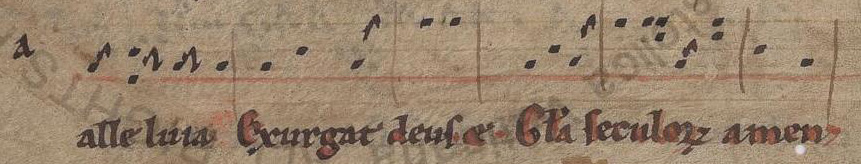 a
alleluia Exurgat deus e Gl'a seculoꝝ amen